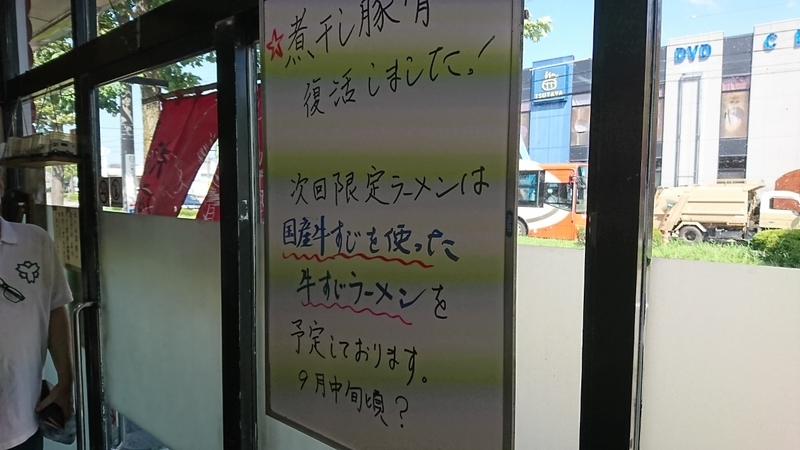 ☆煮干し豚骨
復活しました!
次回限定ラーメンは
国産牛すじを使った
牛すじラーメンを
予定しております。
9月中旬頃?
TSUTAYA
DVD
C